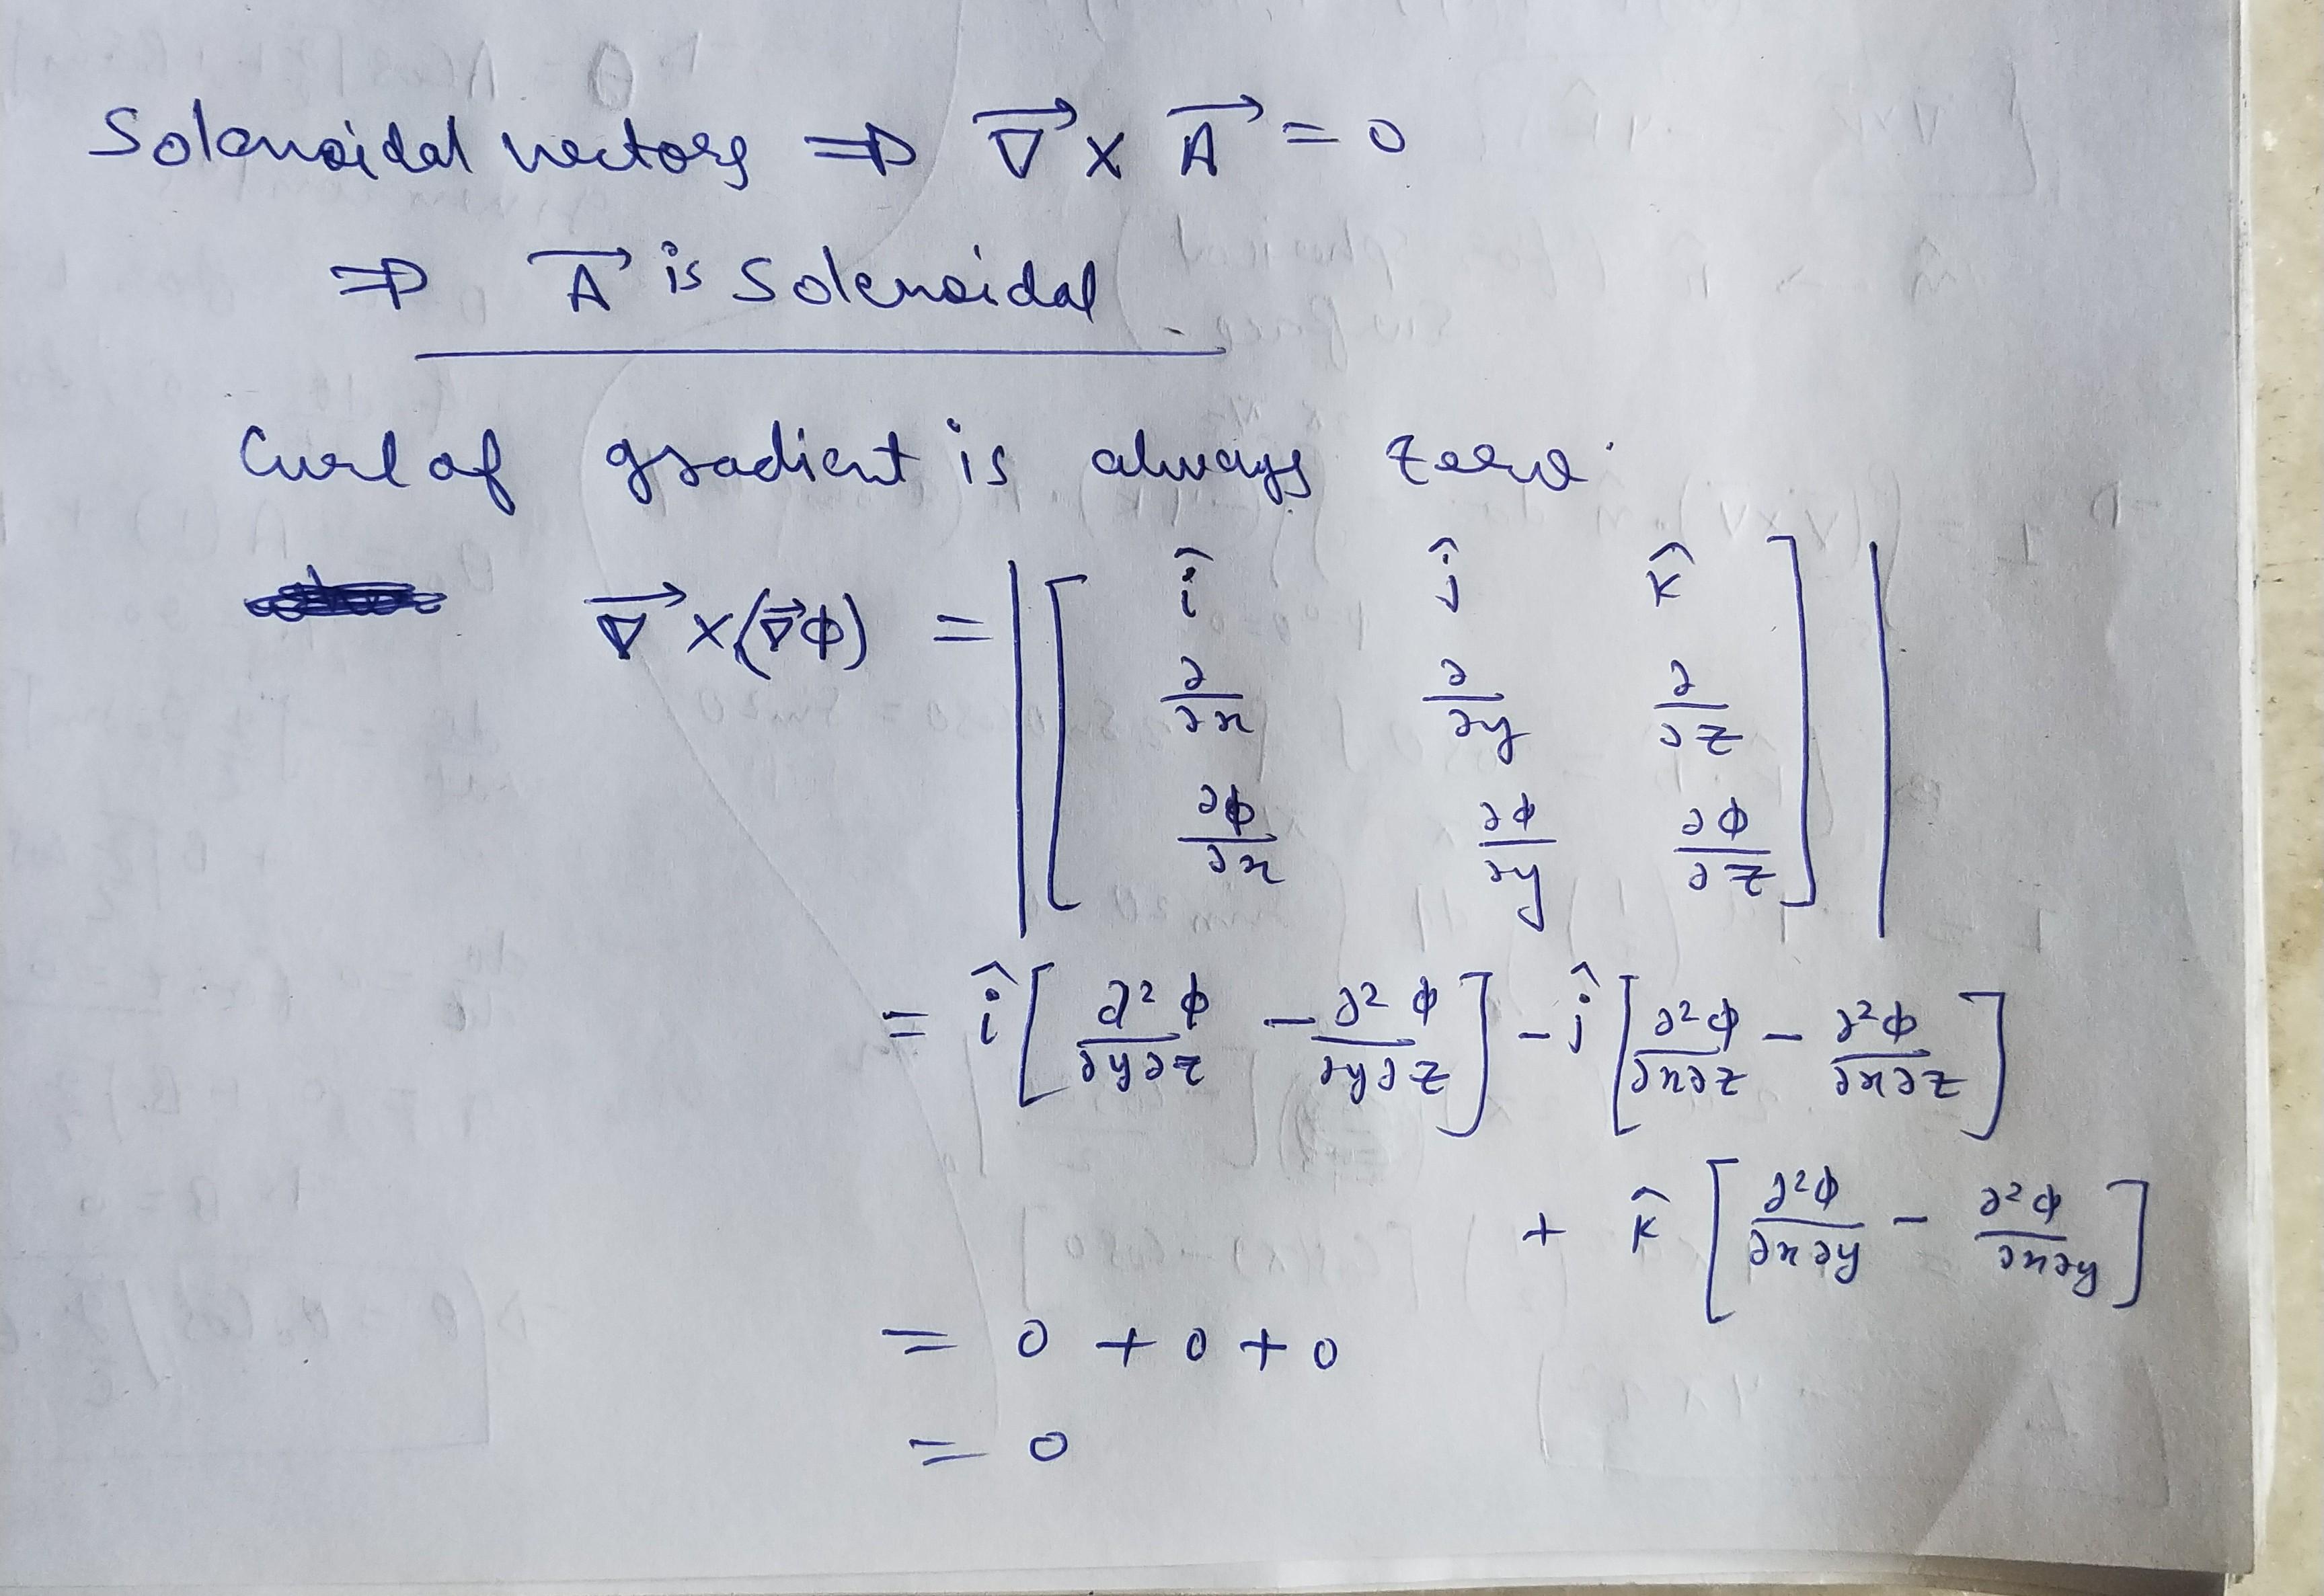 Solenoidal vectors ⇒ ∇⃗ × A⃗ = 0
⇒ A⃗ is Solenoidal.
Curl of gradient is always zero.
∇⃗ ×(∇⃗ϕ) = |[ î ĵ k̂
∂/∂x ∂/∂y ∂/∂z
∂ϕ/∂x ∂ϕ/∂y ∂ϕ/∂z ]|
= î [ ∂²ϕ/∂y∂z − ∂²ϕ/∂y∂z ] − ĵ [ ∂²ϕ/∂x∂z − ∂²ϕ/∂x∂z ]
+ k̂ [ ∂²ϕ/∂x∂y − ∂²ϕ/∂x∂y ]
= 0 + 0 + 0
= 0